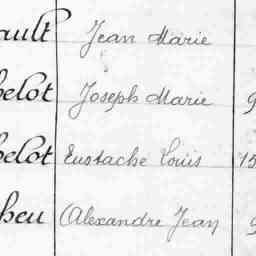 ault Jean Marie
elot Joseph Marie 9
elot Eustache Louis 15
heu Alexandre Jean 9